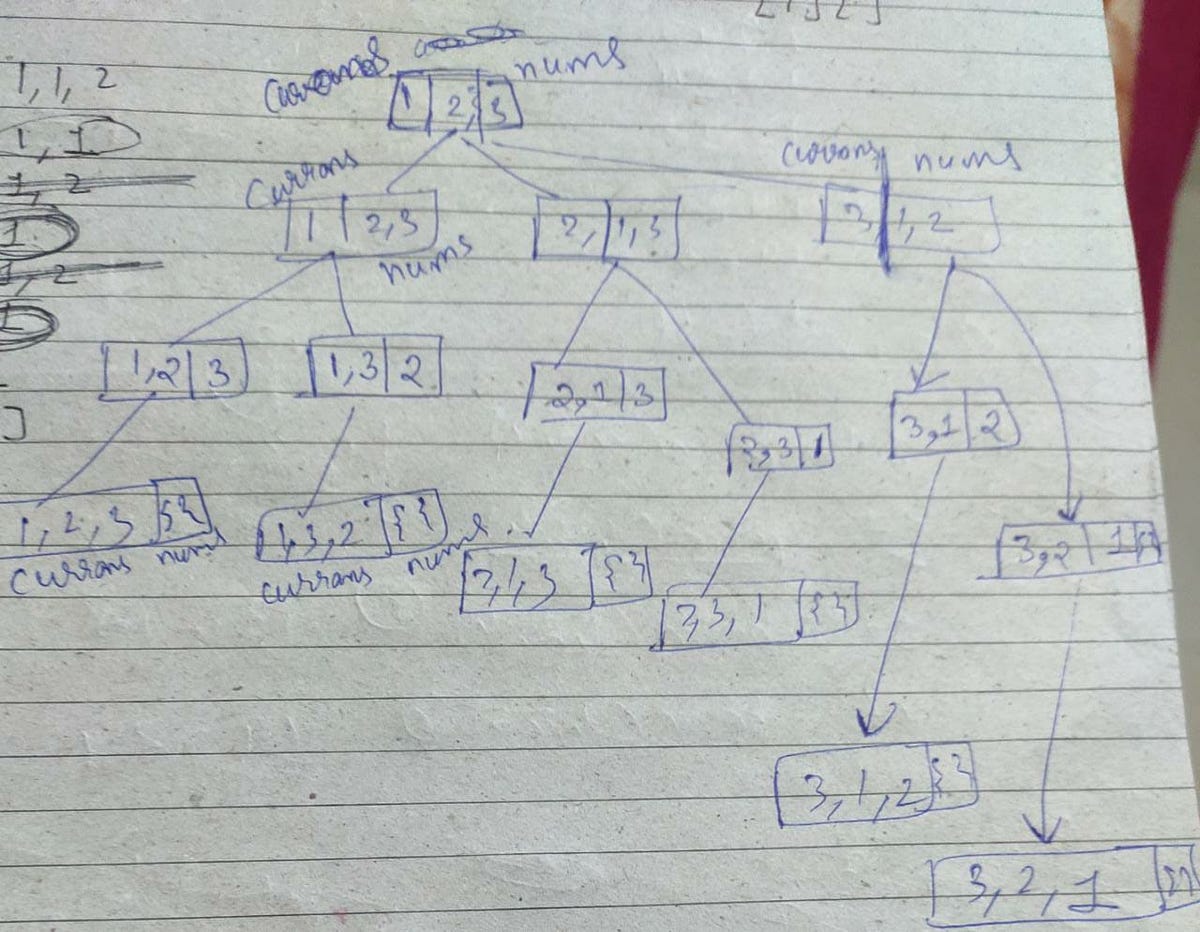 1, 1, 2
nums
1 | 2, 3
1, 1
currans nums
1, 2
Currans
1 | 2,3
2, | 1,3
3, | 1, 2
1
nums
1, 2
1,2 | 3
1,3 | 2
2,1 | 3
3,1 | 2
]
2,3 | 1
1, 2, 3 {}
1,3, 2 {}
3,2 | 1 {}
currans nums
currans nums
2,1,3 {}
2,3, 1 {}
3, 1, 2 {}
3, 2, 1 {}